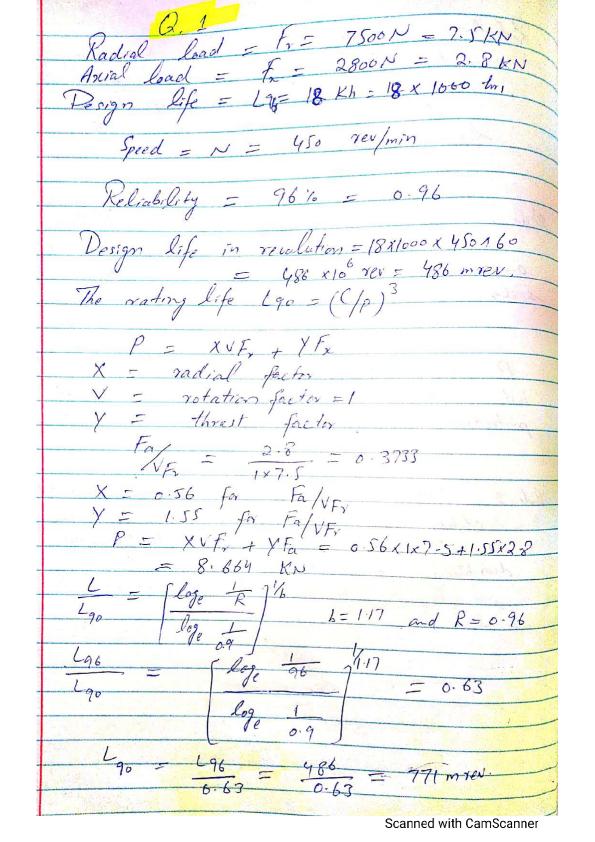 Q. 1
Radial load = Fr = 7500N = 7.5KN
Axial load = Fx = 2800N = 2.8 KN
Design life = L96 = 18 Kh = 18 x 1000 hr,
Speed = N = 450 rev/min
Reliability = 96% = 0.96
Design life in revolution = 18x1000 x 450 x 60
= 486 x10⁶ rev = 486 mrev.
The rating life L90 = (C/P)³
P = XVFr + YFx
X = radial factor
V = rotation factor = 1
Y = thrust factor
Fa/VFr = 2.8/1x7.5 = 0.3733
X = 0.56 for Fa/VFr
Y = 1.55 for Fa/VFr
P = XVFr + YFa = 0.56x1x7.5+1.55x2.8
= 8.664 KN
L/L90 = [loge 1/R / loge 1/0.9]^1/b b = 1.17 and R = 0.96
L96/L90 = [loge 1/96 / loge 1/0.9]^1/1.17 = 0.63
L90 = L96/0.63 = 486/0.63 = 771 mrev.
Scanned with CamScanner